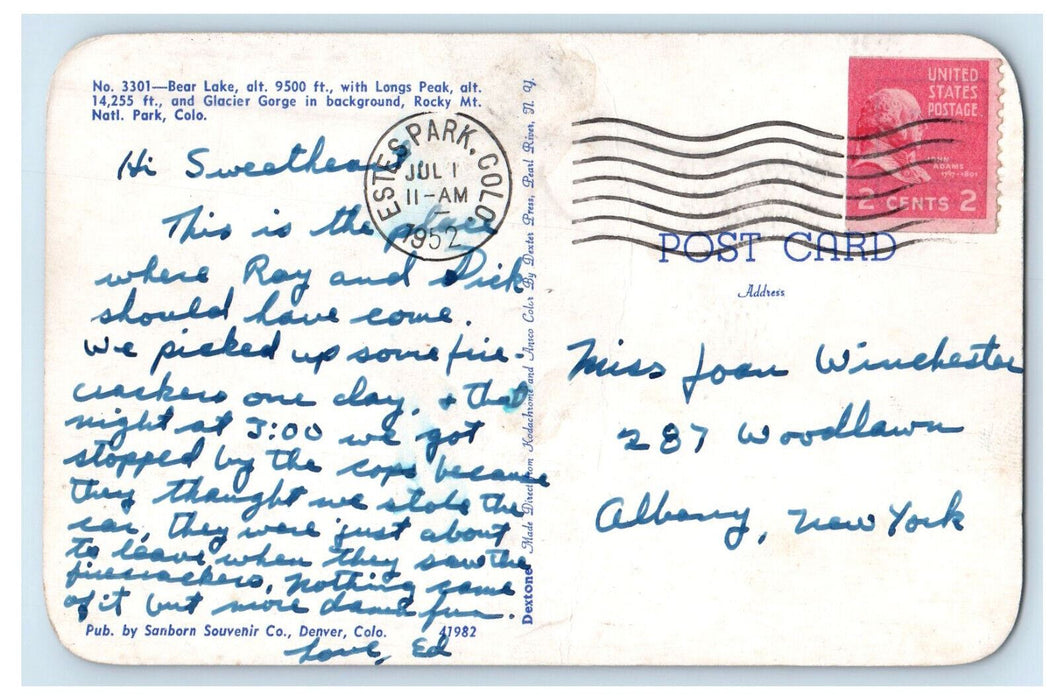 No. 3301—Bear Lake, alt. 9500 ft., with Longs Peak, alt.
14,255 ft., and Glacier Gorge in background, Rocky Mt.
Natl. Park, Colo.
Hi Sweetheart
This is the place
where Ray and Dick
should have come.
We picked up some fire-
crackers one day, + that
night at 3:00 we got
stopped by the cops because
they thought we stole the
car, they were just about
to leave when they saw the
firecrackers, nothing came
of it but more damn fun.
Love, Ed
Pub. by Sanborn Souvenir Co., Denver, Colo. 41982
ESTES PARK, COLO.
JUL 1
11-AM
1952
Dextone Made Direct from Kodachrome and Ansco Color By Dexter Press, Pearl River, N. Y.
UNITED
STATES
POSTAGE
JOHN
ADAMS
1797-1801
2 CENTS 2
POST CARD
Address
Miss Joan Winchester
287 Woodlawn
Albany, New York